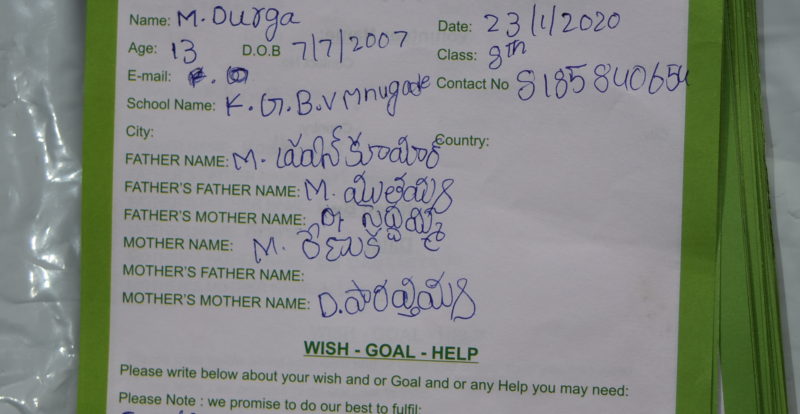 Name: M. Durga Date: 23/1/2020
Age: 13 D.O.B 7/7/2007 Class: 8th
E-mail:
School Name: K. G. B. V Mnugode Contact No 8185840654
City: Country:
FATHER NAME: M.
FATHER'S FATHER NAME: M. ముత్తయ్య
FATHER'S MOTHER NAME:
MOTHER NAME: M. రేణుక
MOTHER'S FATHER NAME:
MOTHER'S MOTHER NAME: D. పారమ్మ
WISH - GOAL - HELP
Please write below about your wish and or Goal and or any Help you may need:
Please Note : we promise to do our best to fulfil: